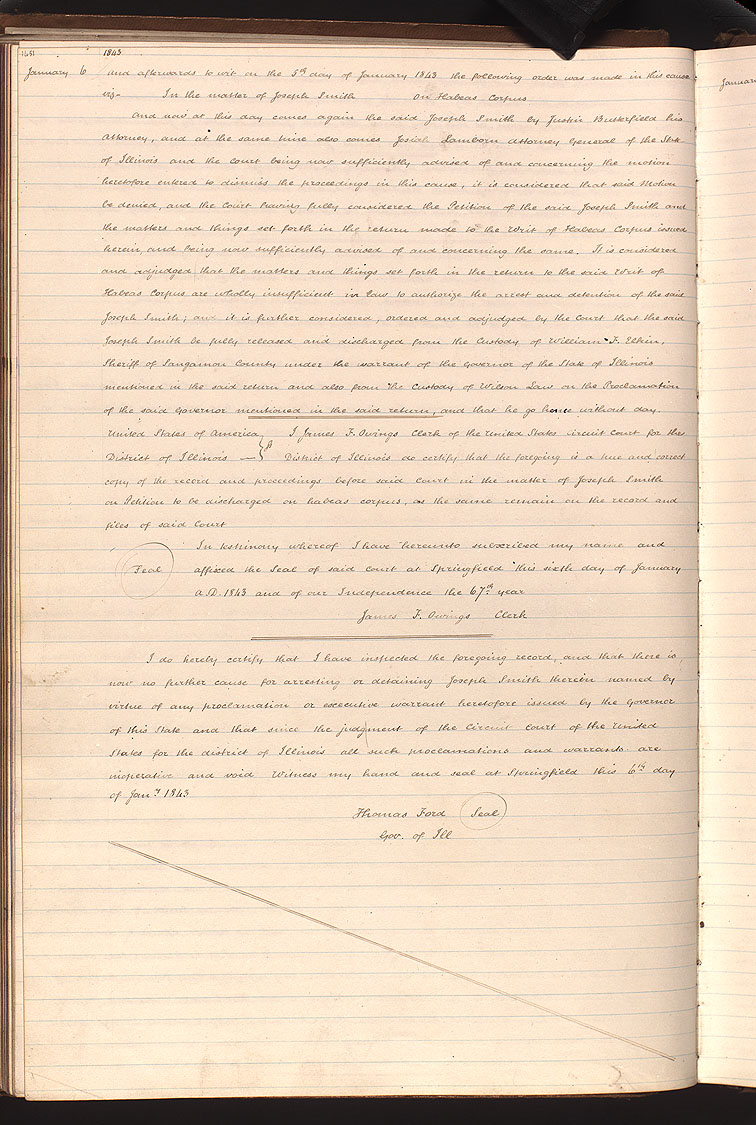 1651
1843
January 6 and afterwards to wit on the 5th day of January 1843 the following order was made in this cause
viz- In the matter of Joseph Smith On Habeas Corpus
And now at this day comes again the said Joseph Smith by Justin Butterfield his
Attorney, and at the same time also comes Josiah Lamborn Attorney General of the State
of Illinois and the court being now sufficiently advised of and concerning the motion
heretofore entered to dismiss the proceedings in this cause, it is considered that said Motion
be denied, and the Court having fully considered the Petition of the said Joseph Smith and
the matters and things set forth in the return made to the Writ of Habeas Corpus issued
herein, and being now sufficiently advised of and concerning the same. It is considered
and adjudged that the matters and things set forth in the return to the said Writ of
Habeas Corpus are wholly insufficient in Law to authorize the arrest and detention of the said
Joseph Smith; and it is further considered, ordered and adjudged by the Court that the said
Joseph Smith be fully released and discharged from the custody of William F. Elkin,
Sheriff of Sangamon County under the warrant of the Governor of the State of Illinois
mentioned in the said return and also from the custody of Wilson Law on the Proclamation
of the said Governor mentioned in the said return, and that he go hence without day.
United States of America I James F. Owings Clerk of the United States circuit Court for the
District of Illinois — } ss District of Illinois do certify that the foregoing is a true and correct
copy of the record and proceedings before said Court in the matter of Joseph Smith
on Petition to be discharged on habeas corpus, as the same remain on the record and
files of said Court
In testimony whereof I have hereunto subscribed my name and
Seal affixed the Seal of said court at Springfield this sixth day of January
A.D. 1843 and of our Independence the 67th year
James F. Owings Clerk
I do hereby certify that I have inspected the foregoing record, and that there is
now no further cause for arresting or detaining Joseph Smith therein named by
virtue of any proclamation or executive warrant heretofore issued by the Governor
of this State and that since the judgment of the Circuit Court of the United
States for the district of Illinois all such proclamations and warrants are
inoperative and void Witness my hand and seal at Springfield this 6th day
of Jany 1843
Thomas Ford Seal
Gov. of Ill
January